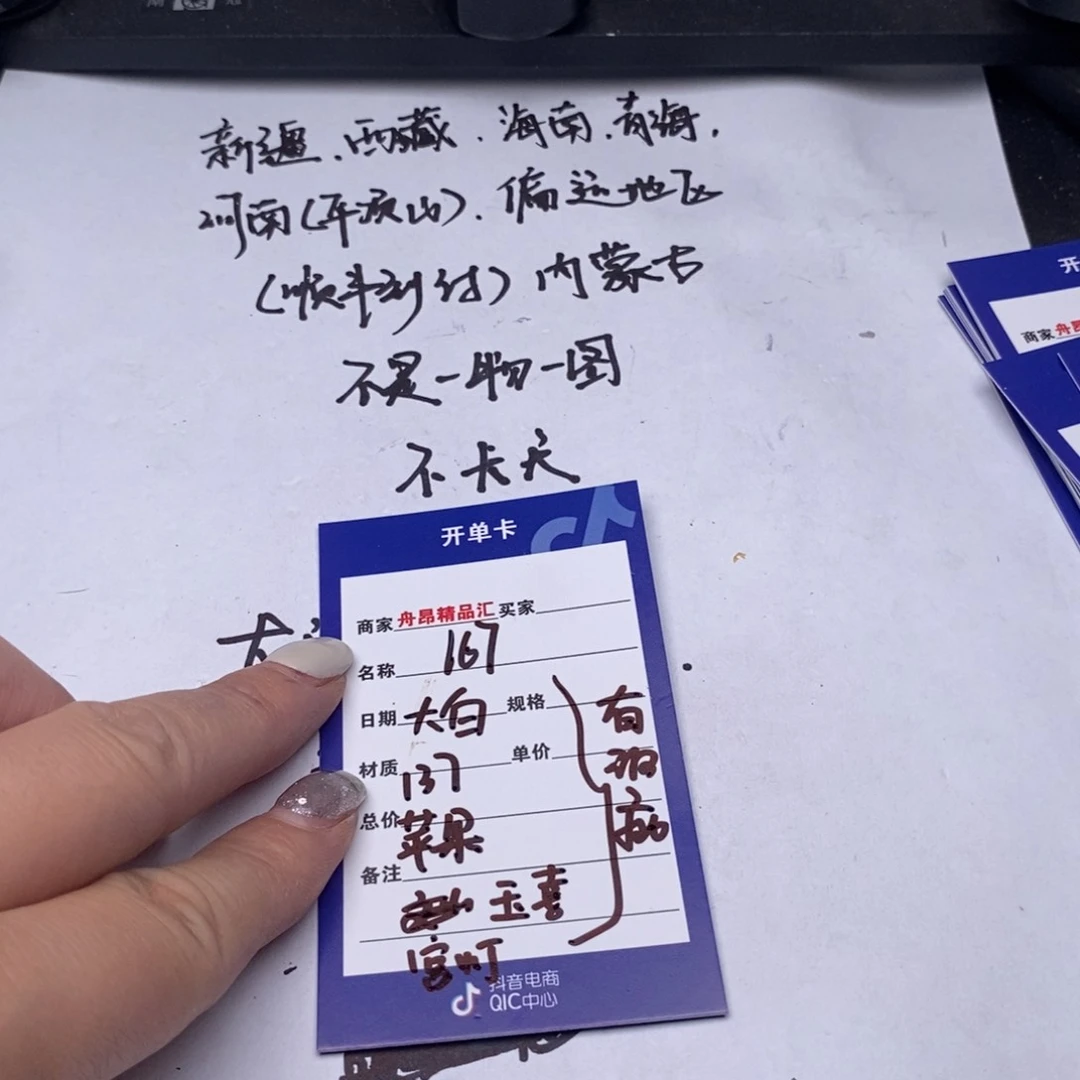 新疆、西藏、海南、青海,
河南(平顶山)、偏远地区
(顺丰到付)内蒙古
不是一物一图
不卡天
开单卡
商家 舟昂精品汇 买家
名称 167
日期 大白 规格
材质 137 单价
总价 苹果
备注
玉喜
宫灯
有
病
抖音电商
QIC中心
开
商家 舟昂